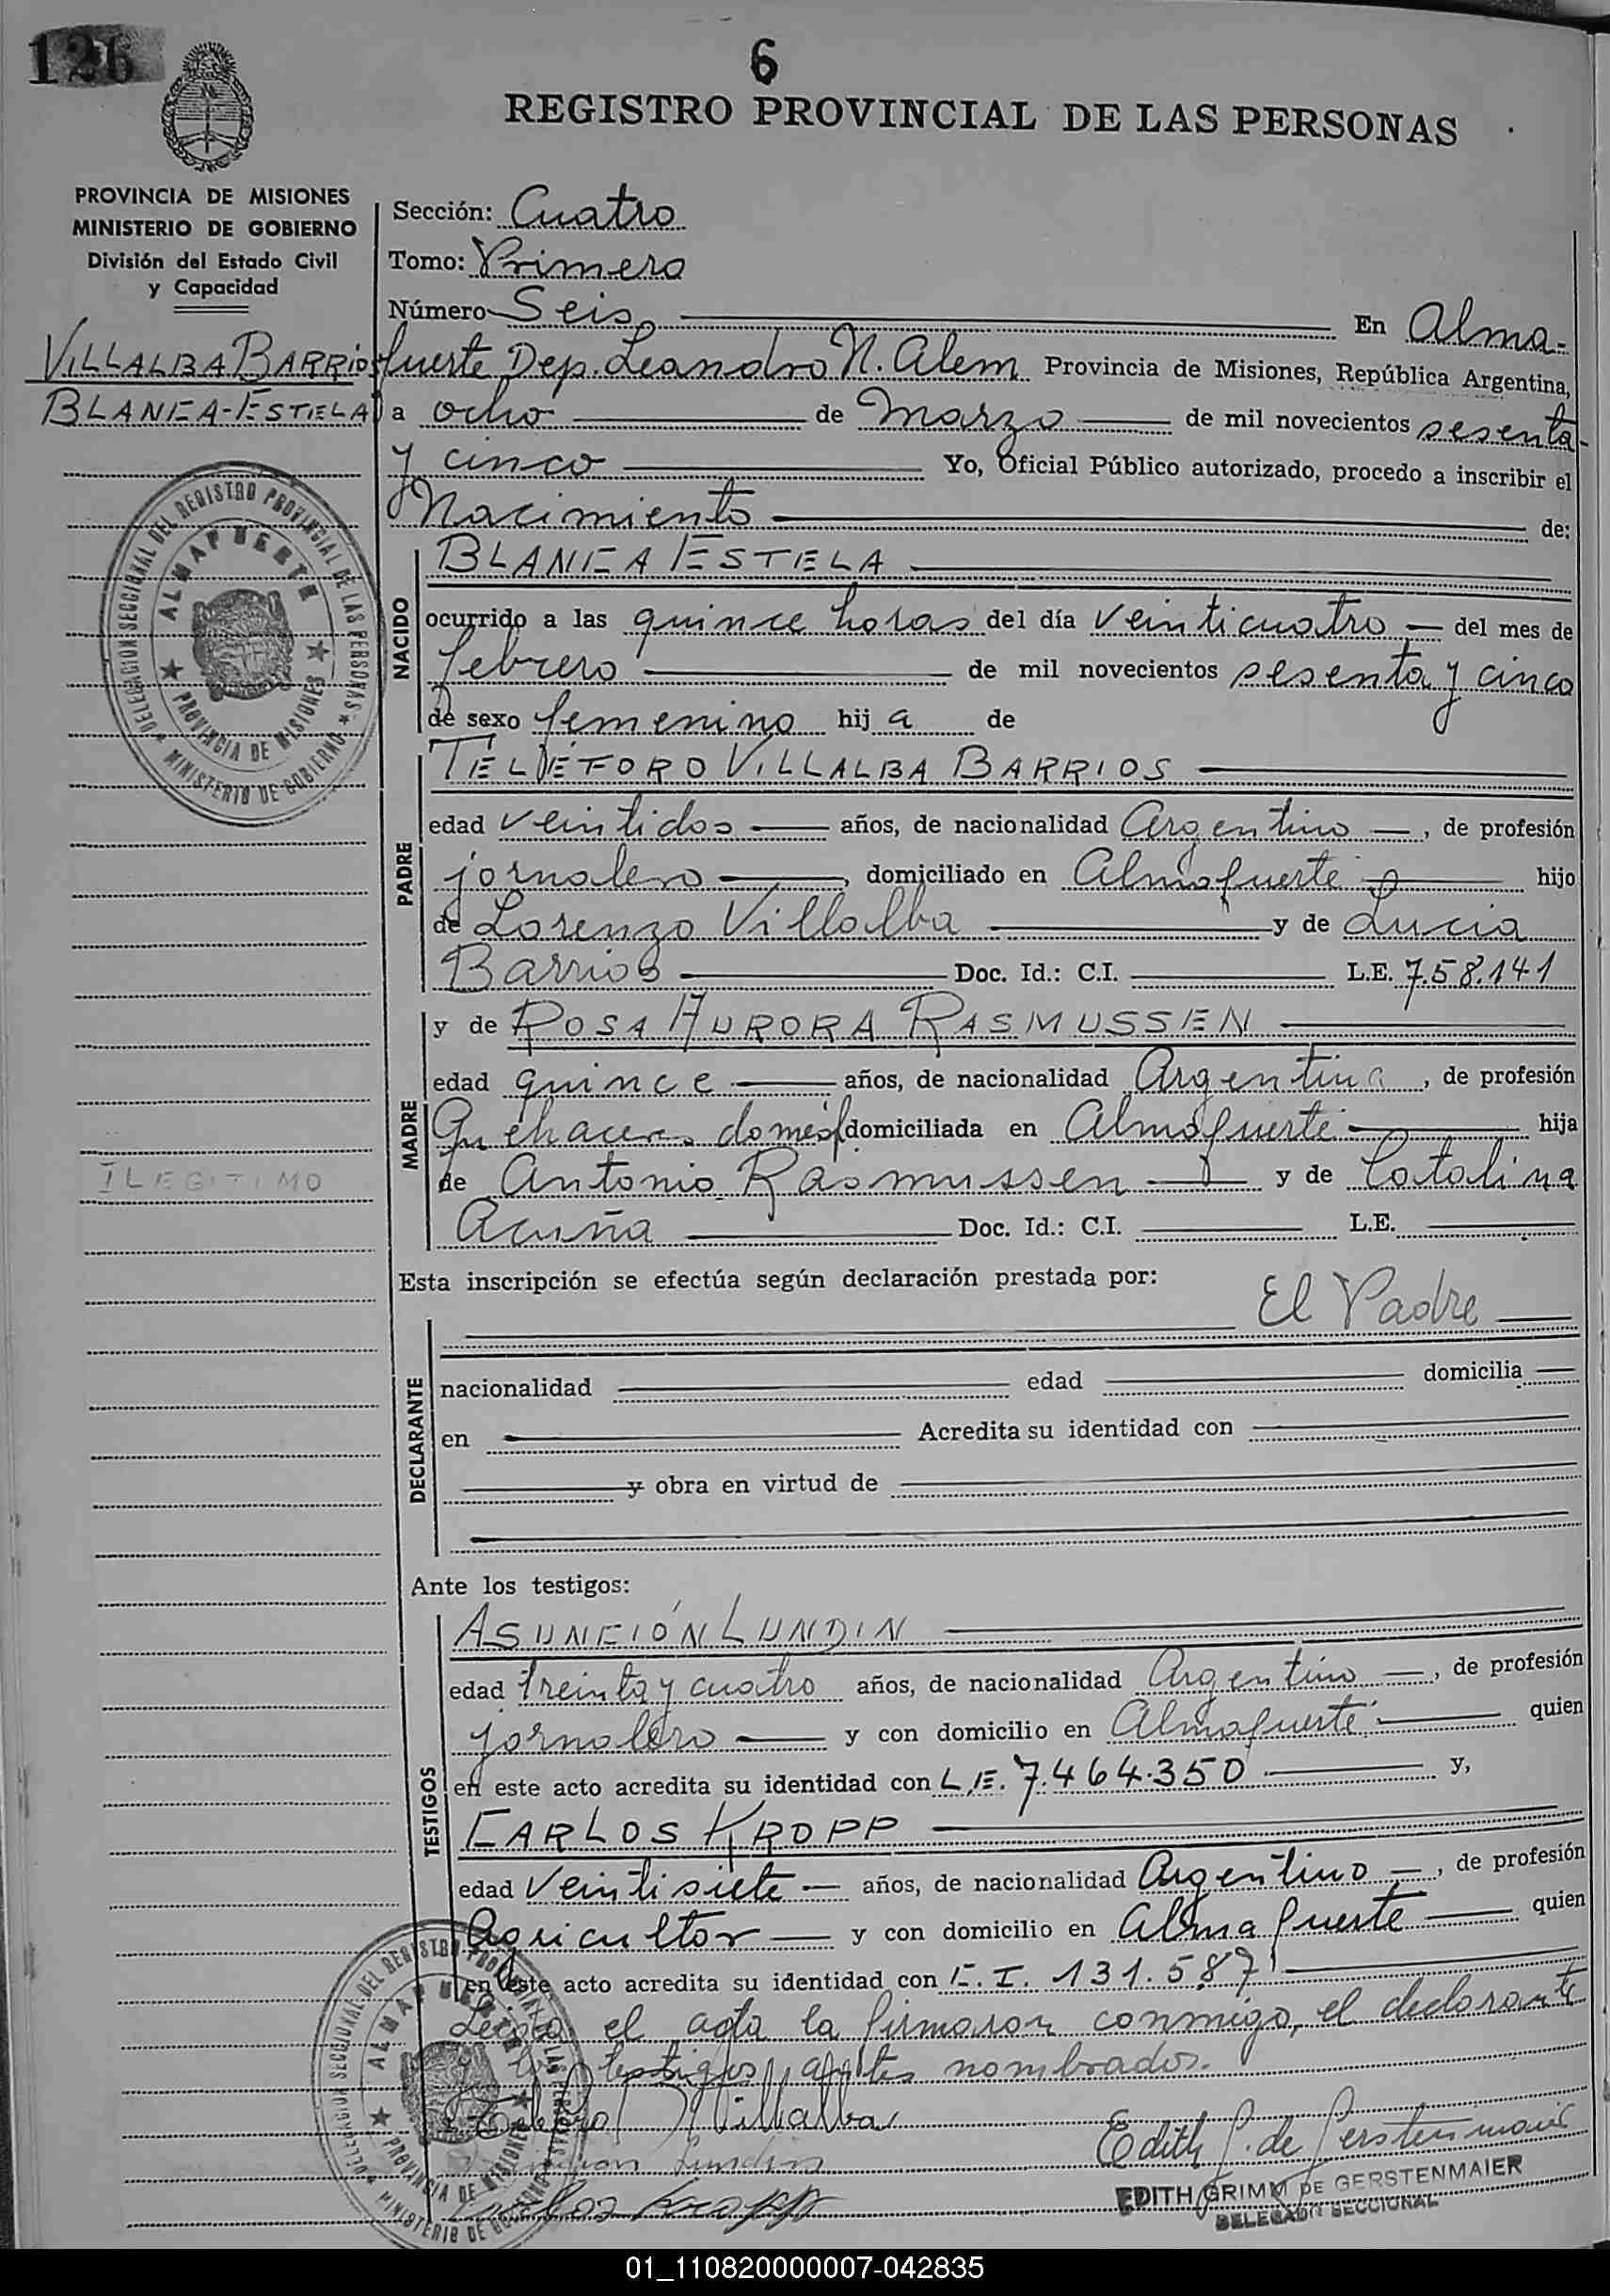 126
6
REGISTRO PROVINCIAL DE LAS PERSONAS
PROVINCIA DE MISIONES
MINISTERIO DE GOBIERNO
División del Estado Civil
y Capacidad
Sección: Cuatro
Tomo: Primero
Número Seis En Alma-
VILLALBA BARRIOS
BLANCA-ESTELA
fuerte Dep. Leandro N. Alem Provincia de Misiones, República Argentina,
a ocho de Marzo de mil novecientos sesenta
y cinco Yo, Oficial Público autorizado, procedo a inscribir el
Nacimiento de:
DELEGACION SECCIONAL DEL REGISTRO PROVINCIAL DE LAS PERSONAS
ALMAFUERTE
PROVINCIA DE MISIONES
MINISTERIO DE GOBIERNO
NACIDO
BLANCA ESTELA
ocurrido a las quince horas del día veinticuatro del mes de
febrero de mil novecientos sesenta y cinco
de sexo femenino hij a de
PADRE
VILLALBA BARRIOS
edad veintidos años, de nacionalidad Argentino, de profesión
jornalero, domiciliado en Almafuerte hijo
de Lorenzo Villalba y de Lucia
Barrios Doc. Id.: C.I. L.E. 7.58.141
MADRE
y de ROSA AURORA RASMUSSEN
edad quince años, de nacionalidad Argentina, de profesión
Quehaceres domést domiciliada en Almafuerte hija
de Antonio Rasmussen y de Catalina
Acuña Doc. Id.: C.I. L.E.
ILEGITIMO
Esta inscripción se efectúa según declaración prestada por:
El Padre
DECLARANTE
nacionalidad edad domicilia
en Acredita su identidad con
y obra en virtud de
Ante los testigos:
TESTIGOS
ASUNCIÓN LUNDIN
edad treinta y cuatro años, de nacionalidad Argentino, de profesión
jornalero y con domicilio en Almafuerte quien
en este acto acredita su identidad con L.E. 7.464.350 y,
CARLOS KROPP
edad Veintisiete años, de nacionalidad Argentino, de profesión
Agricultor y con domicilio en Almafuerte quien
en este acto acredita su identidad con C.I. 131.587
Leida el acta la firmaron conmigo, el declarante
y los testigos antes nombrados.
Villalba
Lundin
Edith G. de Gerstenmaier
EDITH GRIMM DE GERSTENMAIER
DELEGADO SECCIONAL
DELEGACION SECCIONAL DEL REGISTRO
ALMAFUERTE
PROVINCIA DE MISIONES
MINISTERIO DE GOBIERNO
01_110820000007-042835